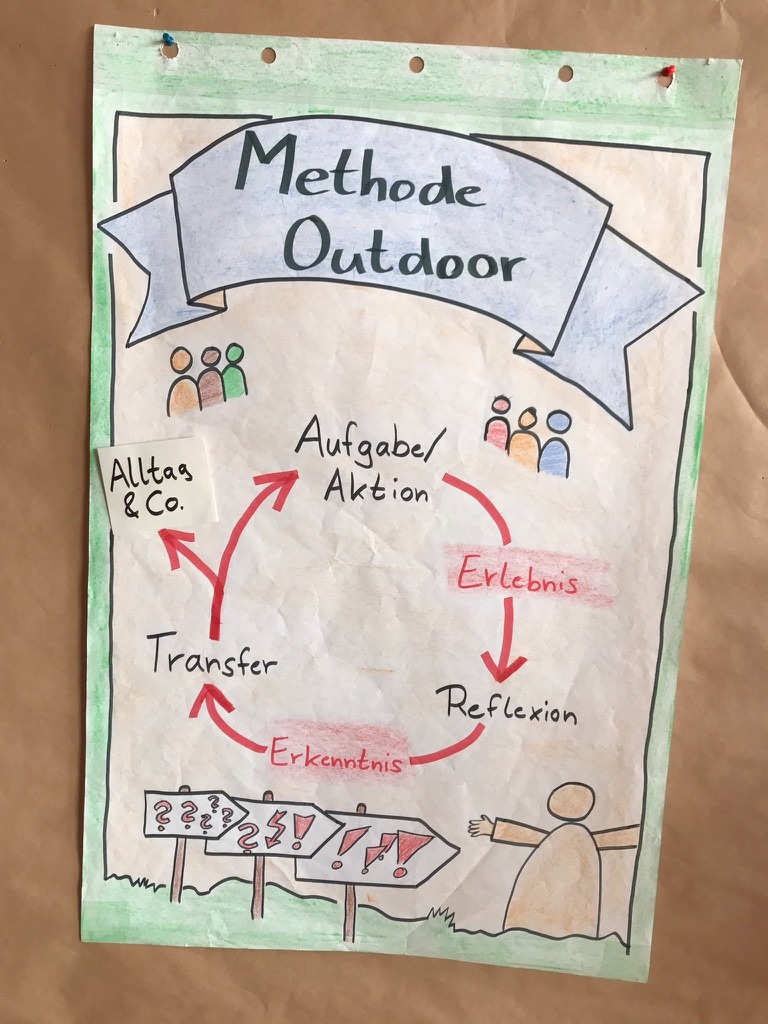 Methode
Outdoor
Aufgabe/
Aktion
Alltag
& Co.
Erlebnis
Transfer
Reflexion
Erkenntnis
? ? ? ? ? ?
? !
! !